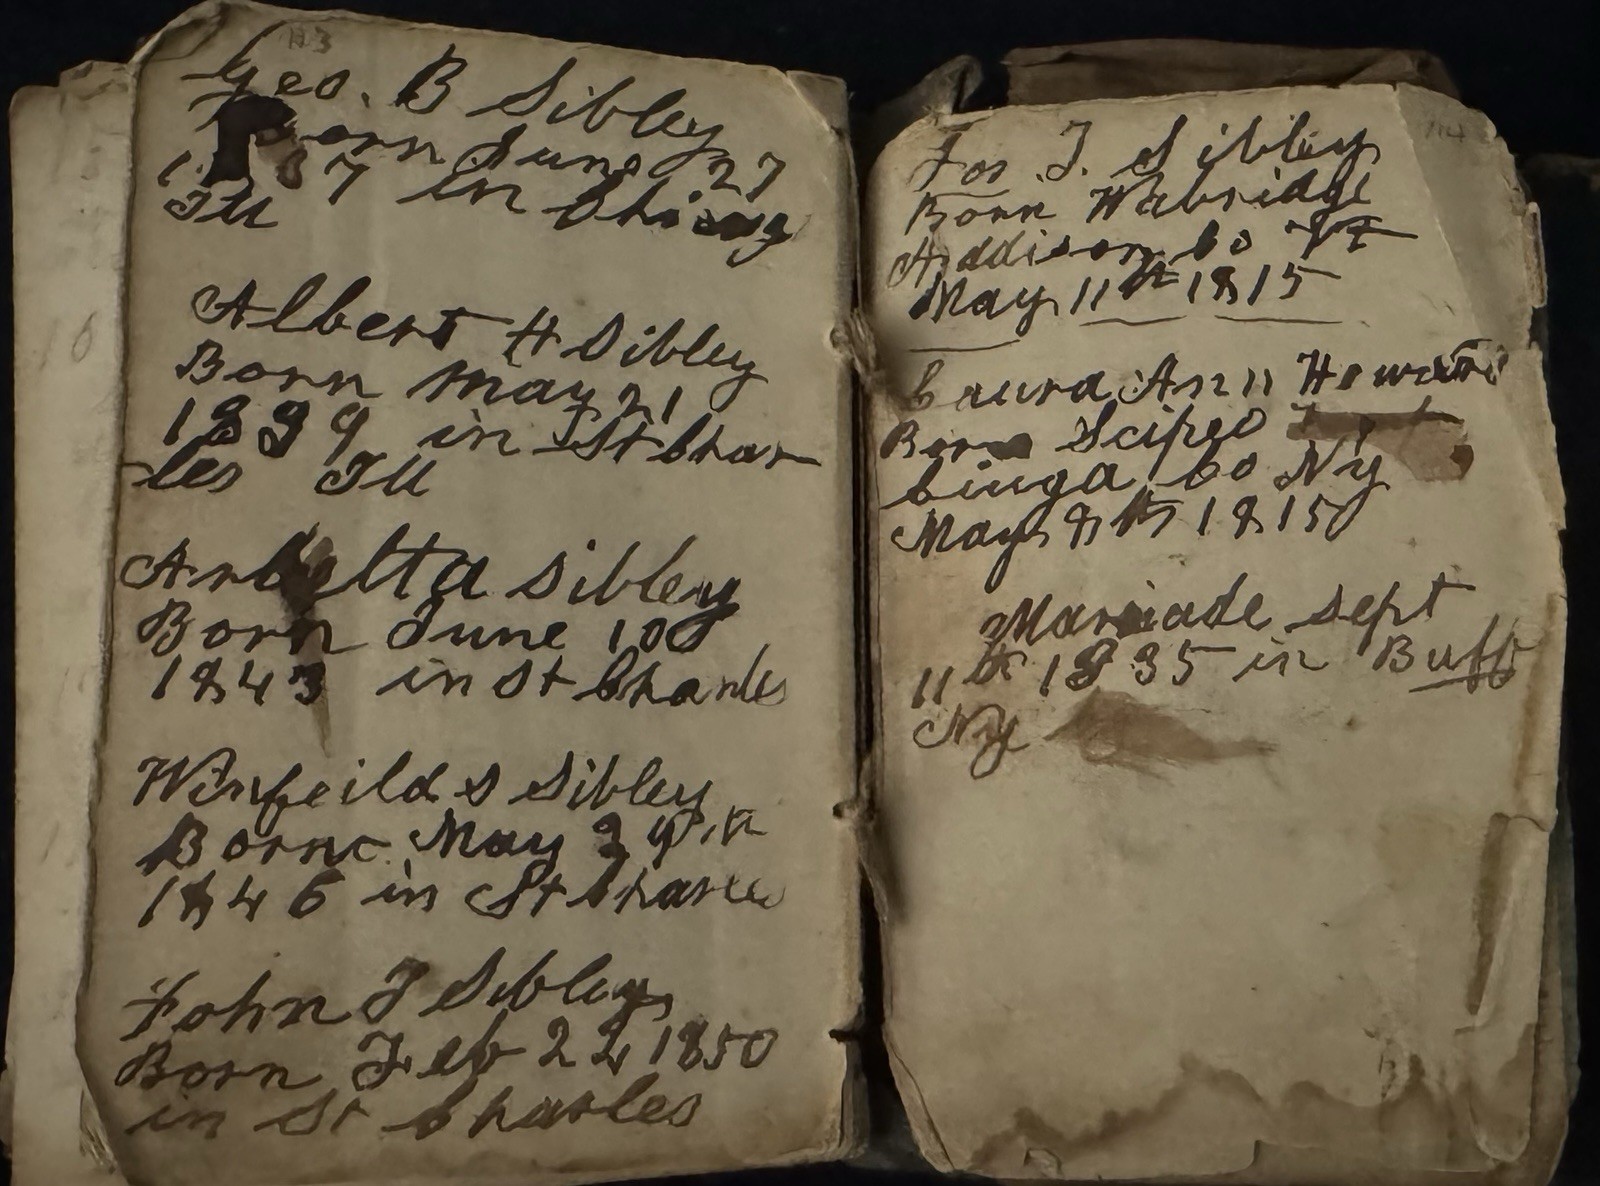 113
Geo. B Sibley
Born June 27
1837 in Chicag
Ill
Albert H Sibley
Born May 21
1839 in St Char
les Ill
Arbelta Sibley
Born June 10
1843 in St Charles
Winfeild S Sibley
Born May 29th
1846 in St Charles
John J Sibley
Born Feb 22 1850
in St Charles
114
Jos. J. Sibley
Born Wabridge
Addison Co Vt
May 11th 1815
Laura Ann Howard
Born Scipeo
Ciuga Co Ny
May 8th 1815
Mariade Sept
11th 1835 in Buff
Ny